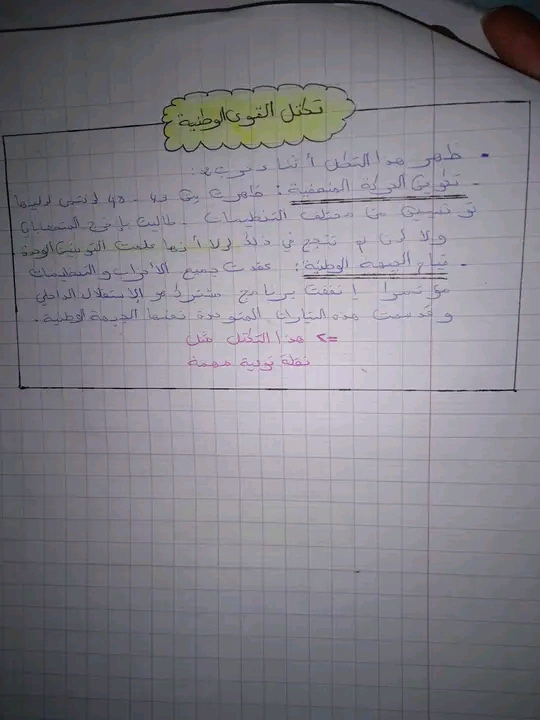 تكتل القوى الوطنية
• ظهر هذا التكتل أثناء حرب
- تكوين الحركة المنصفية : ظهرت بين 43 - 48
تونسيين من مختلف التنظيمات طالبت بإرجاع المنصف باي
ولكن لم تنجح في ذلك إلا أنها علمت التونسيين الوحدة
- قيام الجبهة الوطنية : عقدت جميع الأحزاب والتنظيمات
مؤتمرا إتفقت برنامج مشترك هو الإستقلال الداخلي
وقد سمت هذه التيارات المتوحدة نفسها الجبهة الوطنية.
=> هذا التكتل مثل
نقلة نوعية مهمة